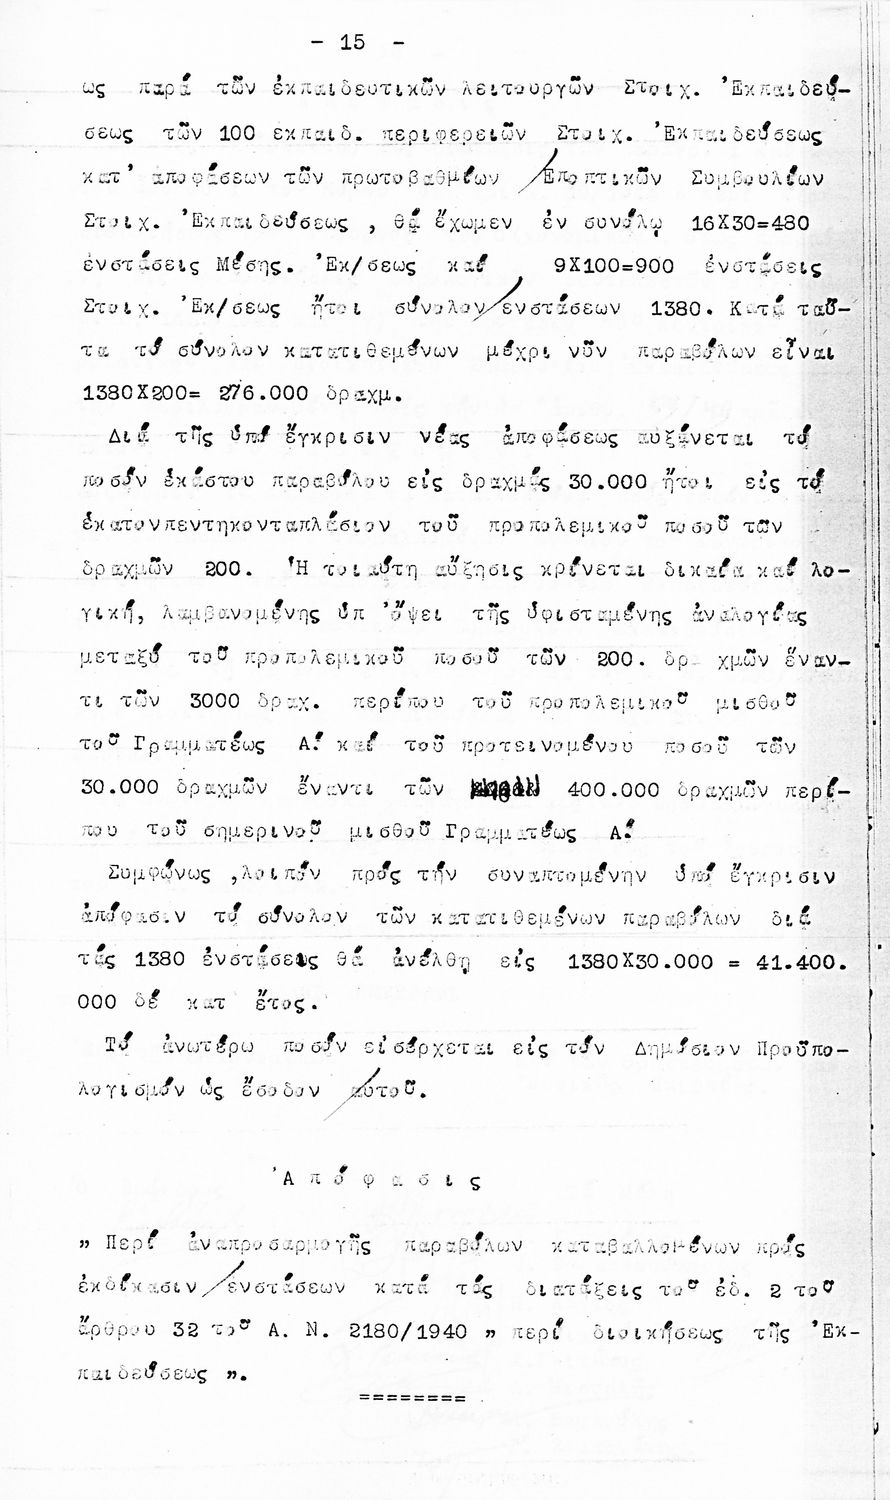 - 15 -
ως παρά τῶν ἐκπαιδευτικῶν λειτουργῶν Στοιχ. Ἐκπαιδεύ-
σεως τῶν 100 εκπαιδ. περιφερειῶν Στοιχ. Ἐκπαιδεύσεως
κατ' αποφάσεων τῶν πρωτοβαθμίων Ἐποπτικῶν Συμβουλίων
Στοιχ. Ἐκπαιδεύσεως , θά ἔχωμεν ἐν συνόλῳ 16Χ30=480
ἐνστάσεις Μέσης. Ἐκ/σεως καί 9Χ100=900 ἐνστάσεις
Στοιχ. Ἐκ/σεως ἤτοι σύνολον ἐνστάσεων 1380. Κατά ταῦ-
τα τό σύνολον κατατιθεμένων μέχρι νῦν παραβόλων εἶναι
1380Χ200= 276.000 δραχμ.
Διά τῆς ὑπό ἔγκρισιν νέας ἀποφάσεως αὐξάνεται τό
ποσόν ἑκάστου παραβόλου εἰς δραχμάς 30.000 ἤτοι εἰς τό
ἑκατονπεντηκονταπλάσιον τοῦ προπολεμικοῦ ποσοῦ τῶν
δραχμῶν 200. Ἡ τοιαύτη αὔξησις κρίνεται δικαία καί λο-
γική, λαμβανομένης ὑπ 'ὄψει τῆς ὑφισταμένης ἀναλογίας
μεταξύ τοῦ προπολεμικοῦ ποσοῦ τῶν 200. δρ χμῶν ἔναν-
τι τῶν 3000 δραχ. περίπου τοῦ προπολεμικοῦ μισθοῦ
τοῦ Γραμματέως Α.' καί τοῦ προτεινομένου ποσοῦ τῶν
30.000 δραχμῶν ἔναντι τῶν 400.000 δραχμῶν περί-
που τοῦ σημερινοῦ μισθοῦ Γραμματέως Α.'
Συμφώνως ,λοιπόν πρός τήν συναπτομένην ὑπό ἔγκρισιν
ἀπόφασιν τό σύνολον τῶν κατατιθεμένων παραβόλων διά
τάς 1380 ἐνστάσεις θά ἀνέλθῃ εἰς 1380Χ30.000 = 41.400.
000 δέ κατ ἔτος.
Τό ἀνωτέρω ποσόν εἰσέρχεται εἰς τόν Δημόσιον Προϋπο-
λογισμόν ὡς ἔσοδον αὐτοῦ.
Ἀ π ό φ α σ ι ς
" Περί ἀναπροσαρμογῆς παραβόλων καταβαλλομένων πρός
ἐκδίκασιν ἐνστάσεων κατά τάς διατάξεις τοῦ ἐδ. 2 τοῦ
ἄρθρου 32 τοῦ Α. Ν. 2180/1940 " περί διοικήσεως τῆς Ἐκ-
παιδεύσεως ".
========